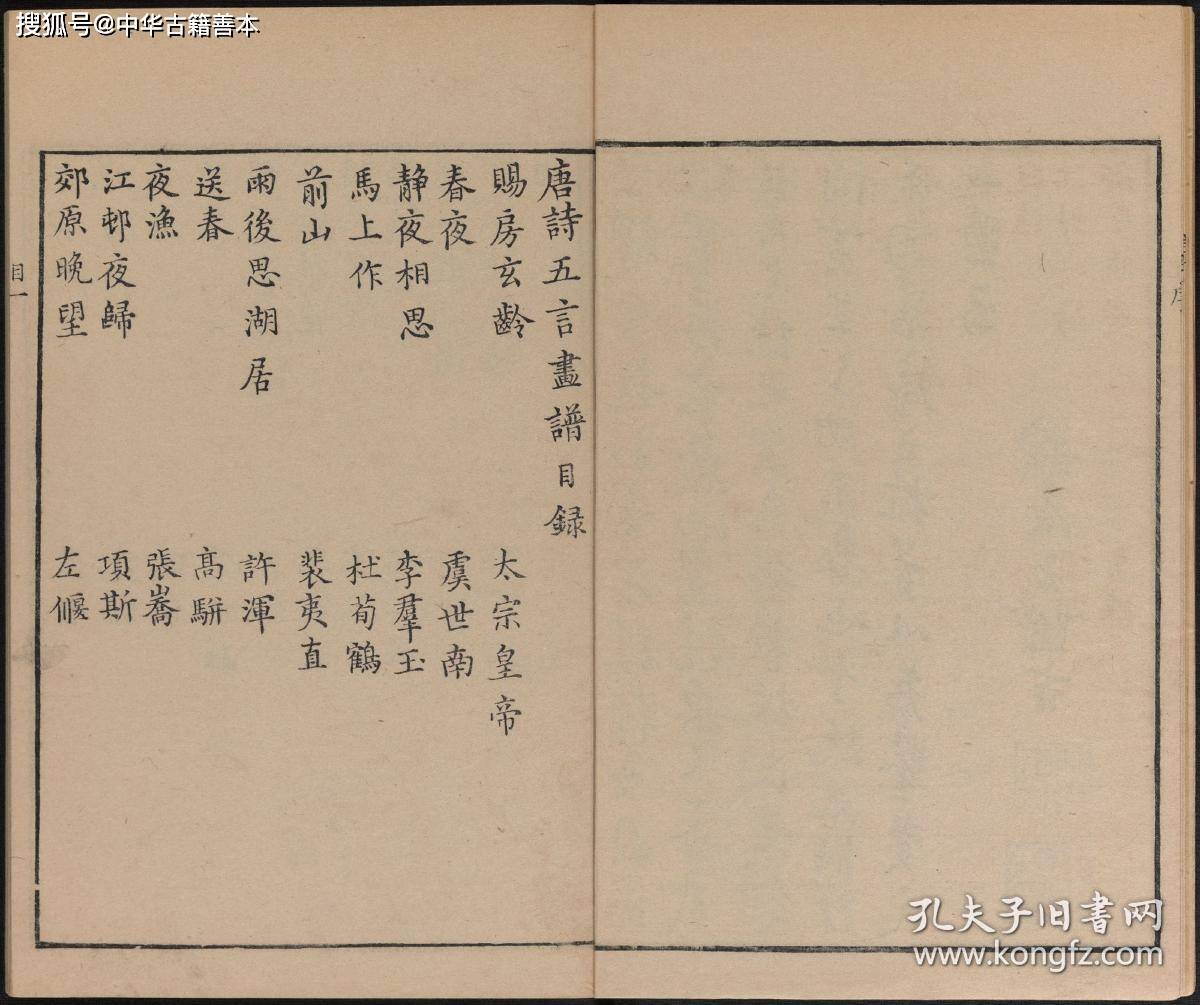 搜狐号@中华古籍善本
唐詩五言畫譜目録
賜房玄齡 太宗皇帝
春夜 虞世南
静夜相思 李羣玉
馬上作 杜荀鶴
前山 裴夷直
雨後思湖居 許渾
送春 高駢
夜漁 張喬
江邨夜歸 項斯
郊原晚望 左偃
目一
孔夫子旧书网
www.kongfz.com